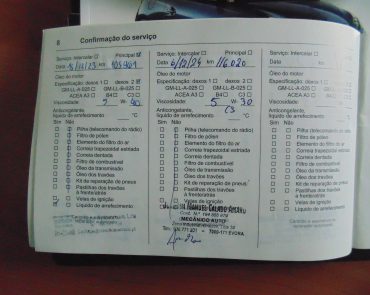 8 Confirmação do serviço
Serviço: Intercalar ☐ Principal ☑
Data km
Óleo do motor
Especificação: dexos 1 ☐ dexos 2 ☑
GM-LL-A-025 ☐ GM-LL-B-025 ☐
ACEA A3 ☐ B4 ☐ C3 ☐
Viscosidade: 5 W
Anticongelante,
líquido de arrefecimento °C
Sim Não
Pilha (telecomando do rádio)
Filtro de pólen
Elemento do filtro do ar
Correia trapezoidal estriada
Correia dentada
Filtro de combustível
Óleo da transmissão
Óleo dos travões
Kit de reparação de pneus
Pastilhas dos travões
à frente/atrás
Velas de ignição
Líquido de arrefecimento
Serviço: Intercalar ☐ Principal ☐
Data 6/12/24 km 116.020
Óleo do motor
Especificação: dexos 1 ☐ dexos 2 ☐
GM-LL-A-025 ☐ GM-LL-B-025 ☐
ACEA A3 ☐ B4 ☐ C3 ☐
Viscosidade: 5 W 30
C3
Anticongelante,
líquido de arrefecimento °C
Sim Não
Pilha (telecomando do rádio)
Filtro de pólen
Elemento do filtro do ar
Correia trapezoidal estriada
Correia dentada
Filtro de combustível
Óleo da transmissão
Óleo dos travões
Kit de reparação de pneus
Pastilhas dos travões
à frente/atrás
Velas de ignição
MECÂNICO AUTO
7005-171 ÉVORA
Serviço: Intercalar ☐ Principal ☐
Data km
Óleo do motor
Especificação: dexos 1 ☐ dexos 2 ☐
GM-LL-A-025 ☐ GM-LL-B-025 ☐
ACEA A3 ☐ B4 ☐ C3 ☐
Viscosidade: W
Anticongelante,
líquido de arrefecimento °C
Sim Não
Pilha (telecomando do rádio)
Filtro de pólen
Elemento do filtro do ar
Correia trapezoidal estriada
Correia dentada
Filtro de combustível
Óleo da transmissão
Óleo dos travões
Kit de reparação de pneus
Pastilhas dos travões
à frente/atrás
Velas de ignição
Líquido de arrefecimento